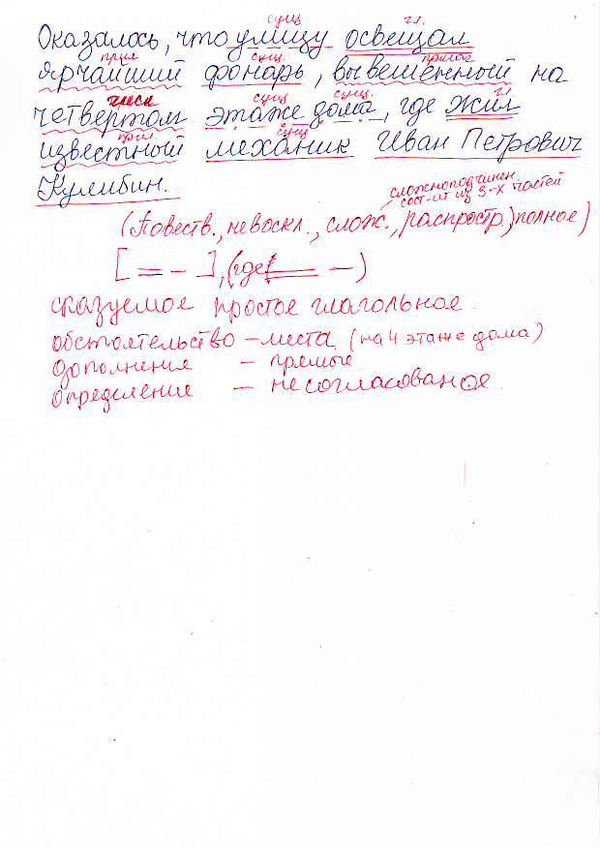 сущ гл.
Оказалось, что улицу освещал
прил сущ. прилаг
ярчайший фонарь, вывешенный на
числ сущ сущ. гл.
четвертом этаже дома, где жил
прил. сущ
известный механик Иван Петрович
Кулибин.
сложноподчинен.
сост-ит из 3-х частей
(Повеств., невоскл., слож., распростр.) полное)
[ = - ], (где = - )
сказуемое простое глагольное.
обстоятельство - места (на 4 этаже дома)
дополнения - прямые
определение - несогласованое.